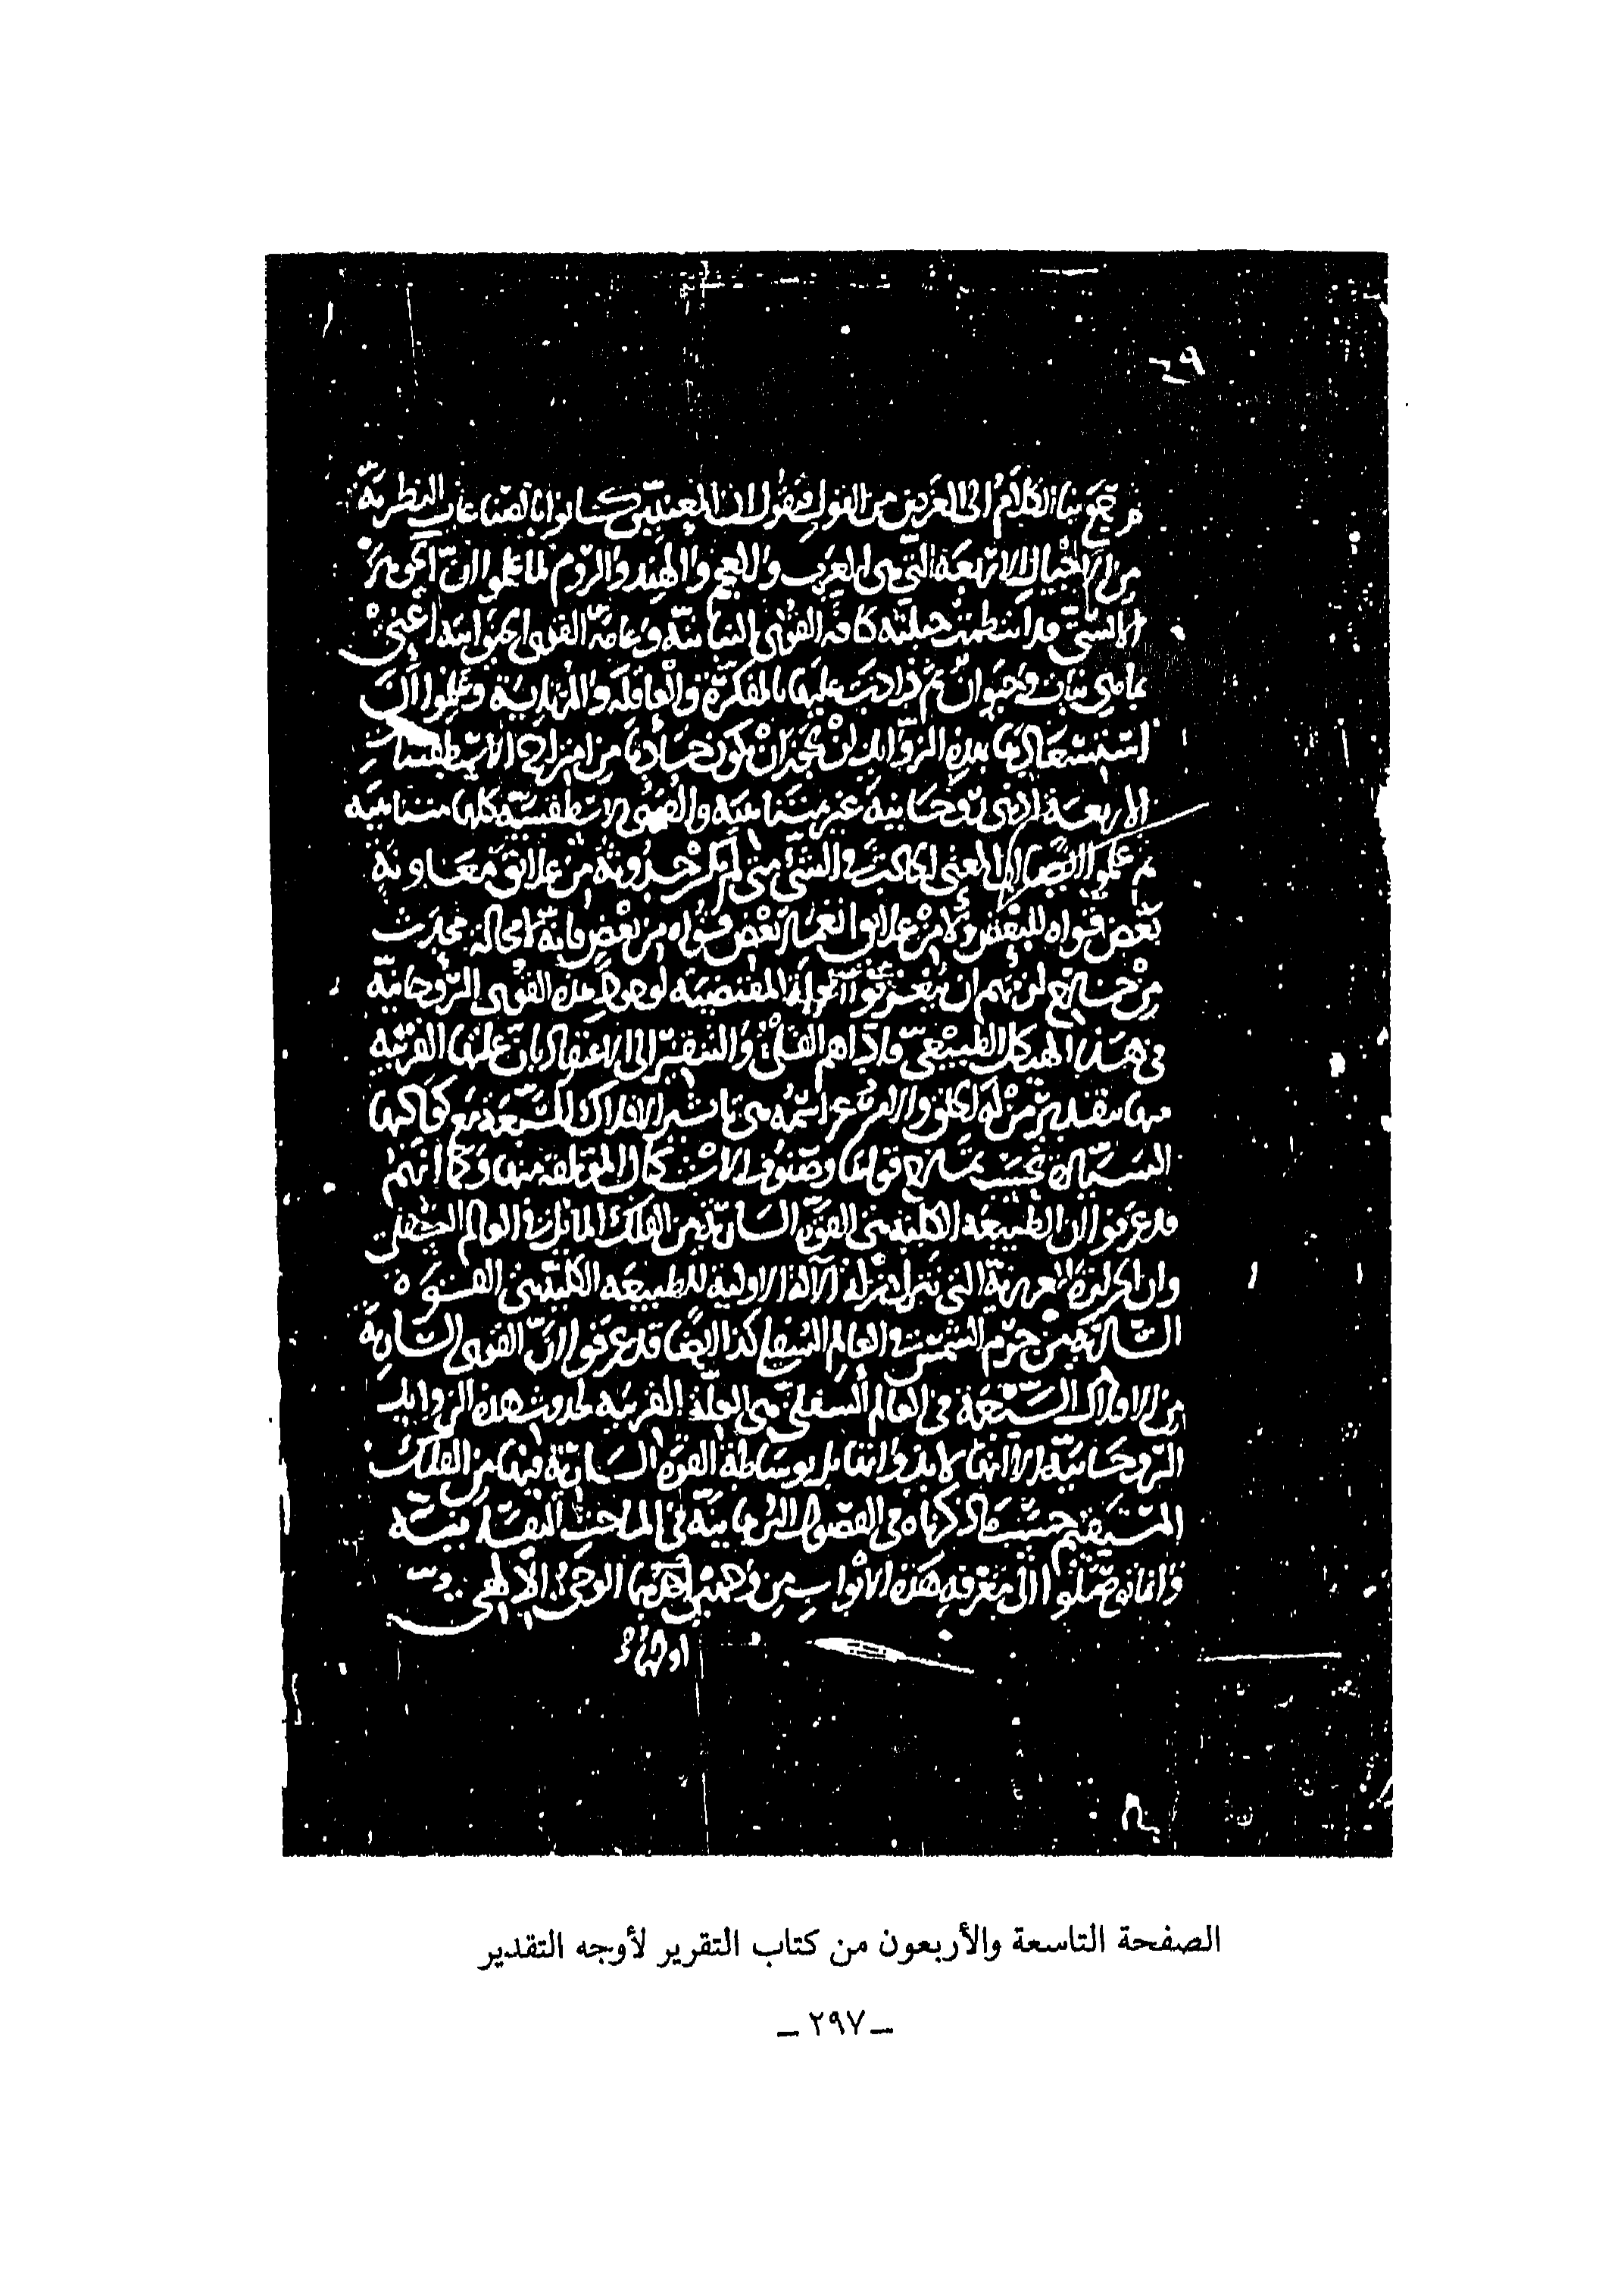 ٤٩
بنا الكلام الى الغرض من القول فنقول ان المعنيين كانوا بالصناعات النظرية
من الاجيال الاربعة التي هي العرب والعجم والهند والروم لما علموا ان الجوهر
الانسي قد انتظمت جبلته كافة القوى النباتية وعامة القوى الحيوانية اعني
بما هي نبات وحيوان ثم زادت عليها بالمفكرة والعاقلة وعلموا ان
بهذه الزوايد لن يجوز ان يكون حادثا من امتزاج الاسطقسات
الاربعة اذ هي روحانية غير متناهية والقوى الاسطقسية كلها متناهية
ثم علموا ايضا ان المعنى الحادث في الشيء متى لم يكن حدوثه من علائق معاونة
بعض قواه للبعض ولا من بعض قواه من بعض فانه لا محالة يحدث
من خارج ان يعرفوا المقتضية لوجود هذه القوى الروحانية
في هذا الهيكل الطبيعي فاداهم والتنقير الى الاعتقاد بان علتها القريبة
منها بتقدير من له الخلق والامر عز اسمه هي تاثير الافلاك السبعة مع كواكبها
السيارة بحسب قواها وصنوف الاشكال منها وكما انهم
قد عرفوا ان الطبيعة الكلية هي القوة السارية من الفلك المائل في العالم السفلي
وان الحرارة الغريزية التي تنزل منزلة الآلة الاولية للطبيعة الكلية هي القوة
السارية من جرم الشمس في العالم السفلي كذا ايضا قد عرفوا ان القوى السارية
من الافلاك السبعة في العالم السفلي هي العلة القريبة لحدوث هذه الزوايد
الروحانية الا انها لا بذواتها بل بوساطة القوة السارية فيها من الفلك
المستقيم حسب ما ذكرناه في الفصول في المباحث النفسانية
وانما توصلوا الى معرفة هذه الابواب من وجهين احدهما الوحي الالهي
الصفحة التاسعة والأربعون من كتاب التقرير لأوجه التقدير
ـ ٢٩٧ ـ